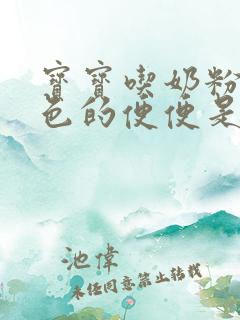 寶寶喫奶粉
色的便便是
池偉
未经同意禁止转载